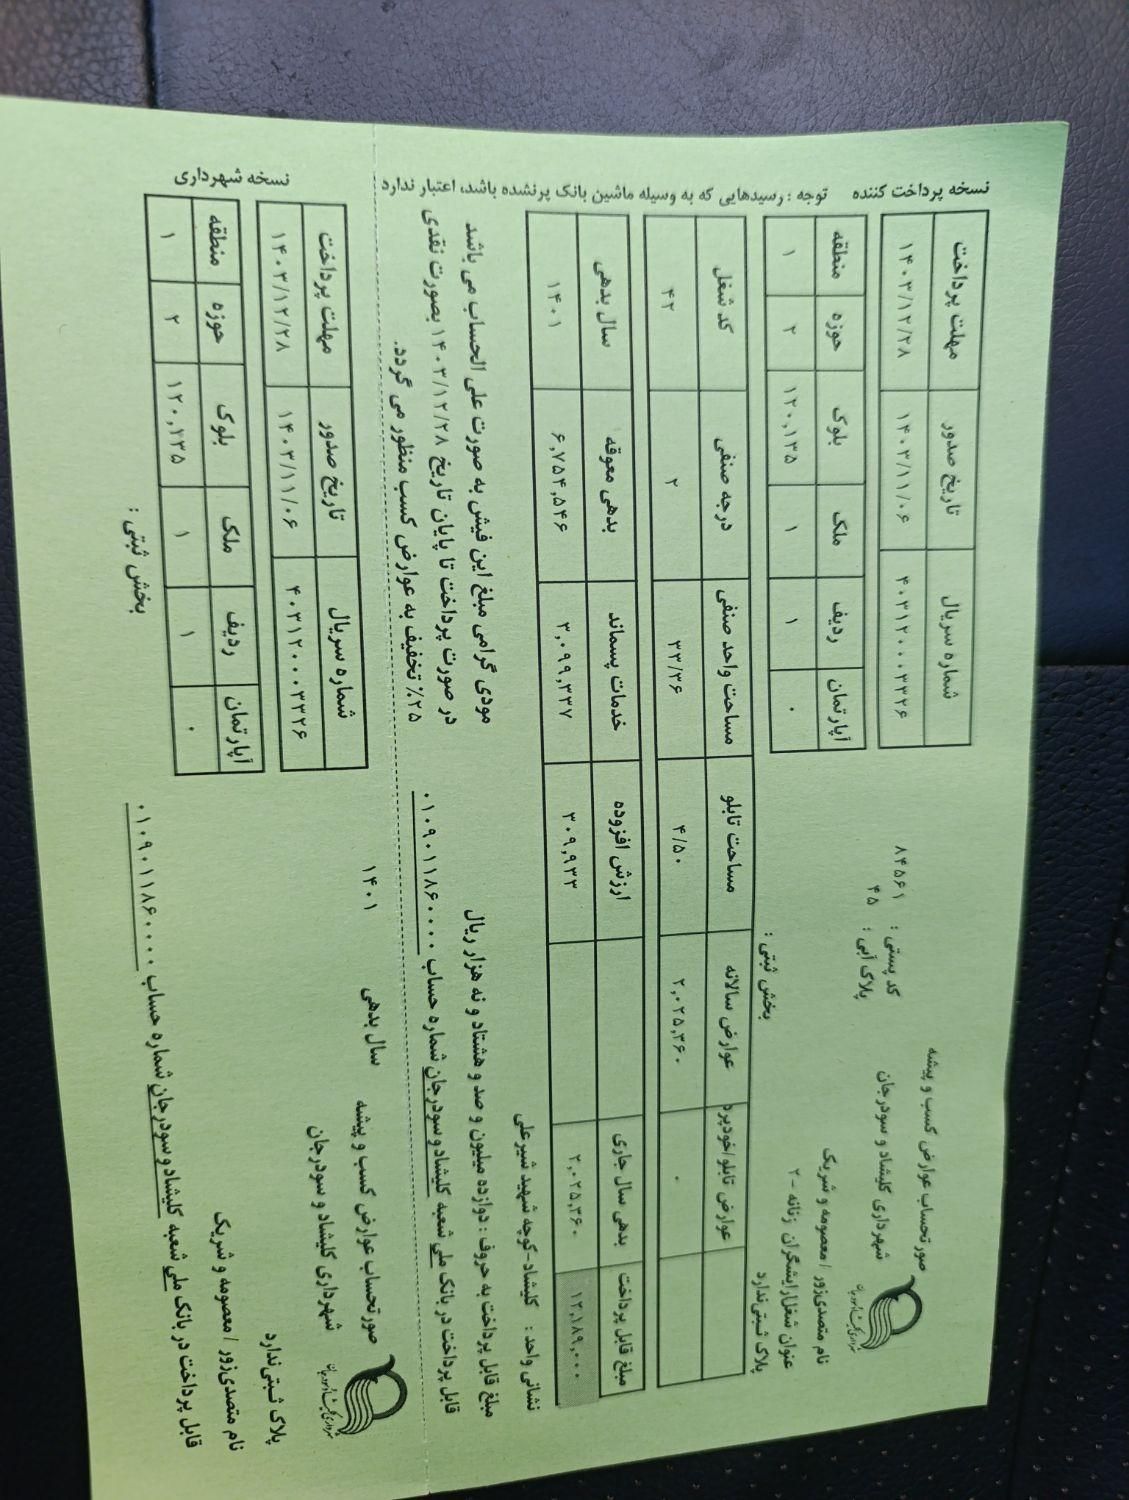 نسخه پرداخت کننده
توجه : رسیدهایی که به وسیله ماشین بانک پرنشده باشد، اعتبار ندارد
صورتحساب عوارض کسب و پیشه
شهرداری کلیشاد و سودرجان
کد پستی : ۸۴۵۶۱
پلاک آبی : ۴۵
شماره سریال تاریخ صدور مهلت پرداخت
۴۰۳۱۲۰۰۰۳۳۲۶ ۱۴۰۳/۱۱/۰۶ ۱۴۰۳/۱۲/۲۸
آپارتمان ردیف ملک بلوک حوزه منطقه
۰ ۱ ۱ ۱۲۰,۱۳۵ ۲ ۱
نام متصدی:زور / معصومه و شریک
عنوان شغل:آرایشگران زنانه - ۲
پلاک ثبتی:ندارد
بخش ثبتی :
عوارض تابلو/خودپرد عوارض سالانه مساحت تابلو مساحت واحد صنفی درجه صنفی کد شغل
۰ ۲,۰۲۵,۳۶۰ ۴/۵۰ ۳۳/۳۶ ۲ ۴۲
مبلغ قابل پرداخت بدهی سال جاری ارزش افزوده خدمات پسماند بدهی معوقه سال بدهی
۱۲,۱۸۹,۰۰۰ ۲,۰۲۵,۳۶۰ ۳۰۹,۹۳۳ ۳,۰۹۹,۳۳۷ ۶,۷۵۴,۵۴۶ ۱۴۰۱
نشانی واحد : کلیشاد-کوچه شهید شیرعلی
مبلغ قابل پرداخت به حروف : دوازده میلیون و صد و هشتاد و نه هزار ریال
قابل پرداخت در بانک ملی شعبه کلیشاد و سودرجان شماره حساب ۰۱۰۹۰۱۱۸۶۰۰۰۰
مودی گرامی مبلغ این فیش به صورت علی الحساب می باشد
در صورت پرداخت تا پایان تاریخ ۱۴۰۳/۱۲/۲۸ بصورت نقدی
۲۵٪ تخفیف به عوارض کسب منظور می گردد.
نسخه شهرداری
صورتحساب عوارض کسب و پیشه
شهرداری کلیشاد و سودرجان
سال بدهی ۱۴۰۱
شماره سریال تاریخ صدور مهلت پرداخت
۴۰۳۱۲۰۰۰۳۳۲۶ ۱۴۰۳/۱۱/۰۶ ۱۴۰۳/۱۲/۲۸
آپارتمان ردیف ملک بلوک حوزه منطقه
۰ ۱ ۱ ۱۲۰,۱۳۵ ۲ ۱
پلاک ثبتی:ندارد
بخش ثبتی :
نام متصدی:زور / معصومه و شریک
قابل پرداخت در بانک ملی شعبه کلیشاد و سودرجان شماره حساب ۰۱۰۹۰۱۱۸۶۰۰۰۰